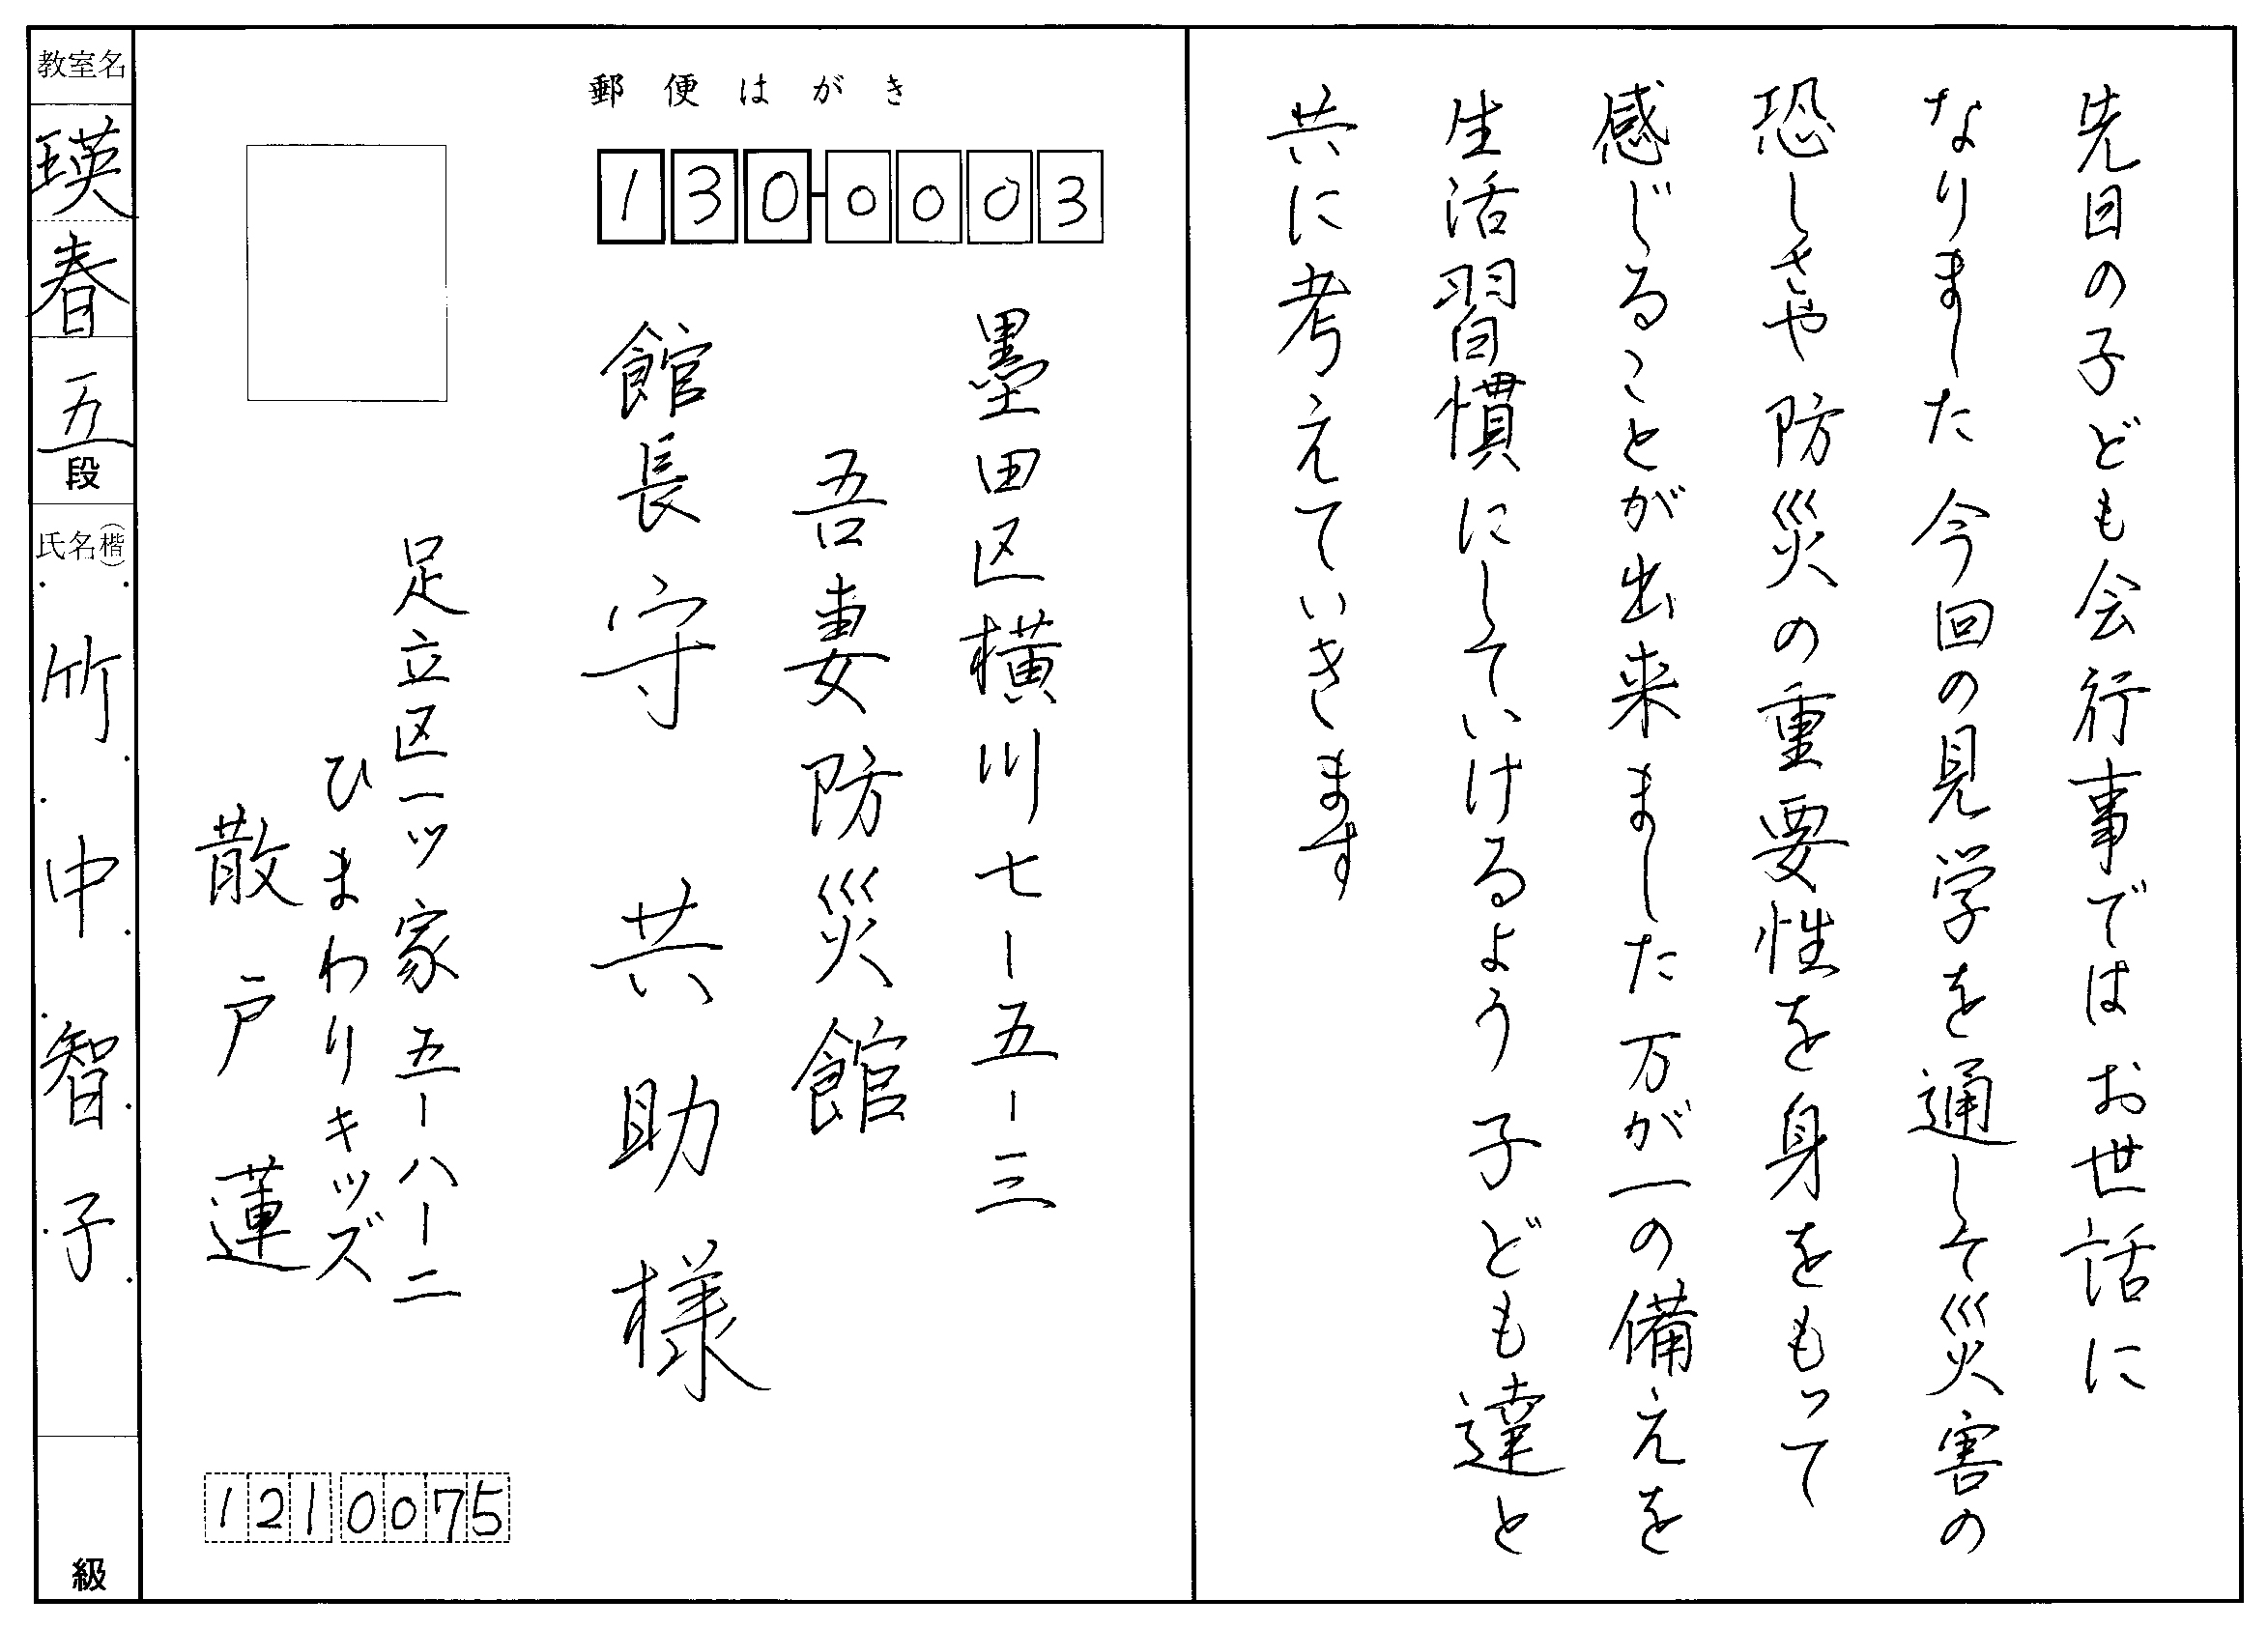 先日の子ども会行事ではお世話に
なりました今回の見学を通して災害の
恐しさや防災の重要性を身をもって
感じることが出来ました万が一の備えを
生活習慣にしていけるよう子ども達と
共に考えていきます
郵便はがき
130-0003
墨田区横川七-五-三
吾妻防災館
館長 守 共助様
足立区一ッ家五-八-二
ひまわりキッズ
散戸蓮
1210075
教室名
瑛春
五段
氏名(楷)
竹中智子
級